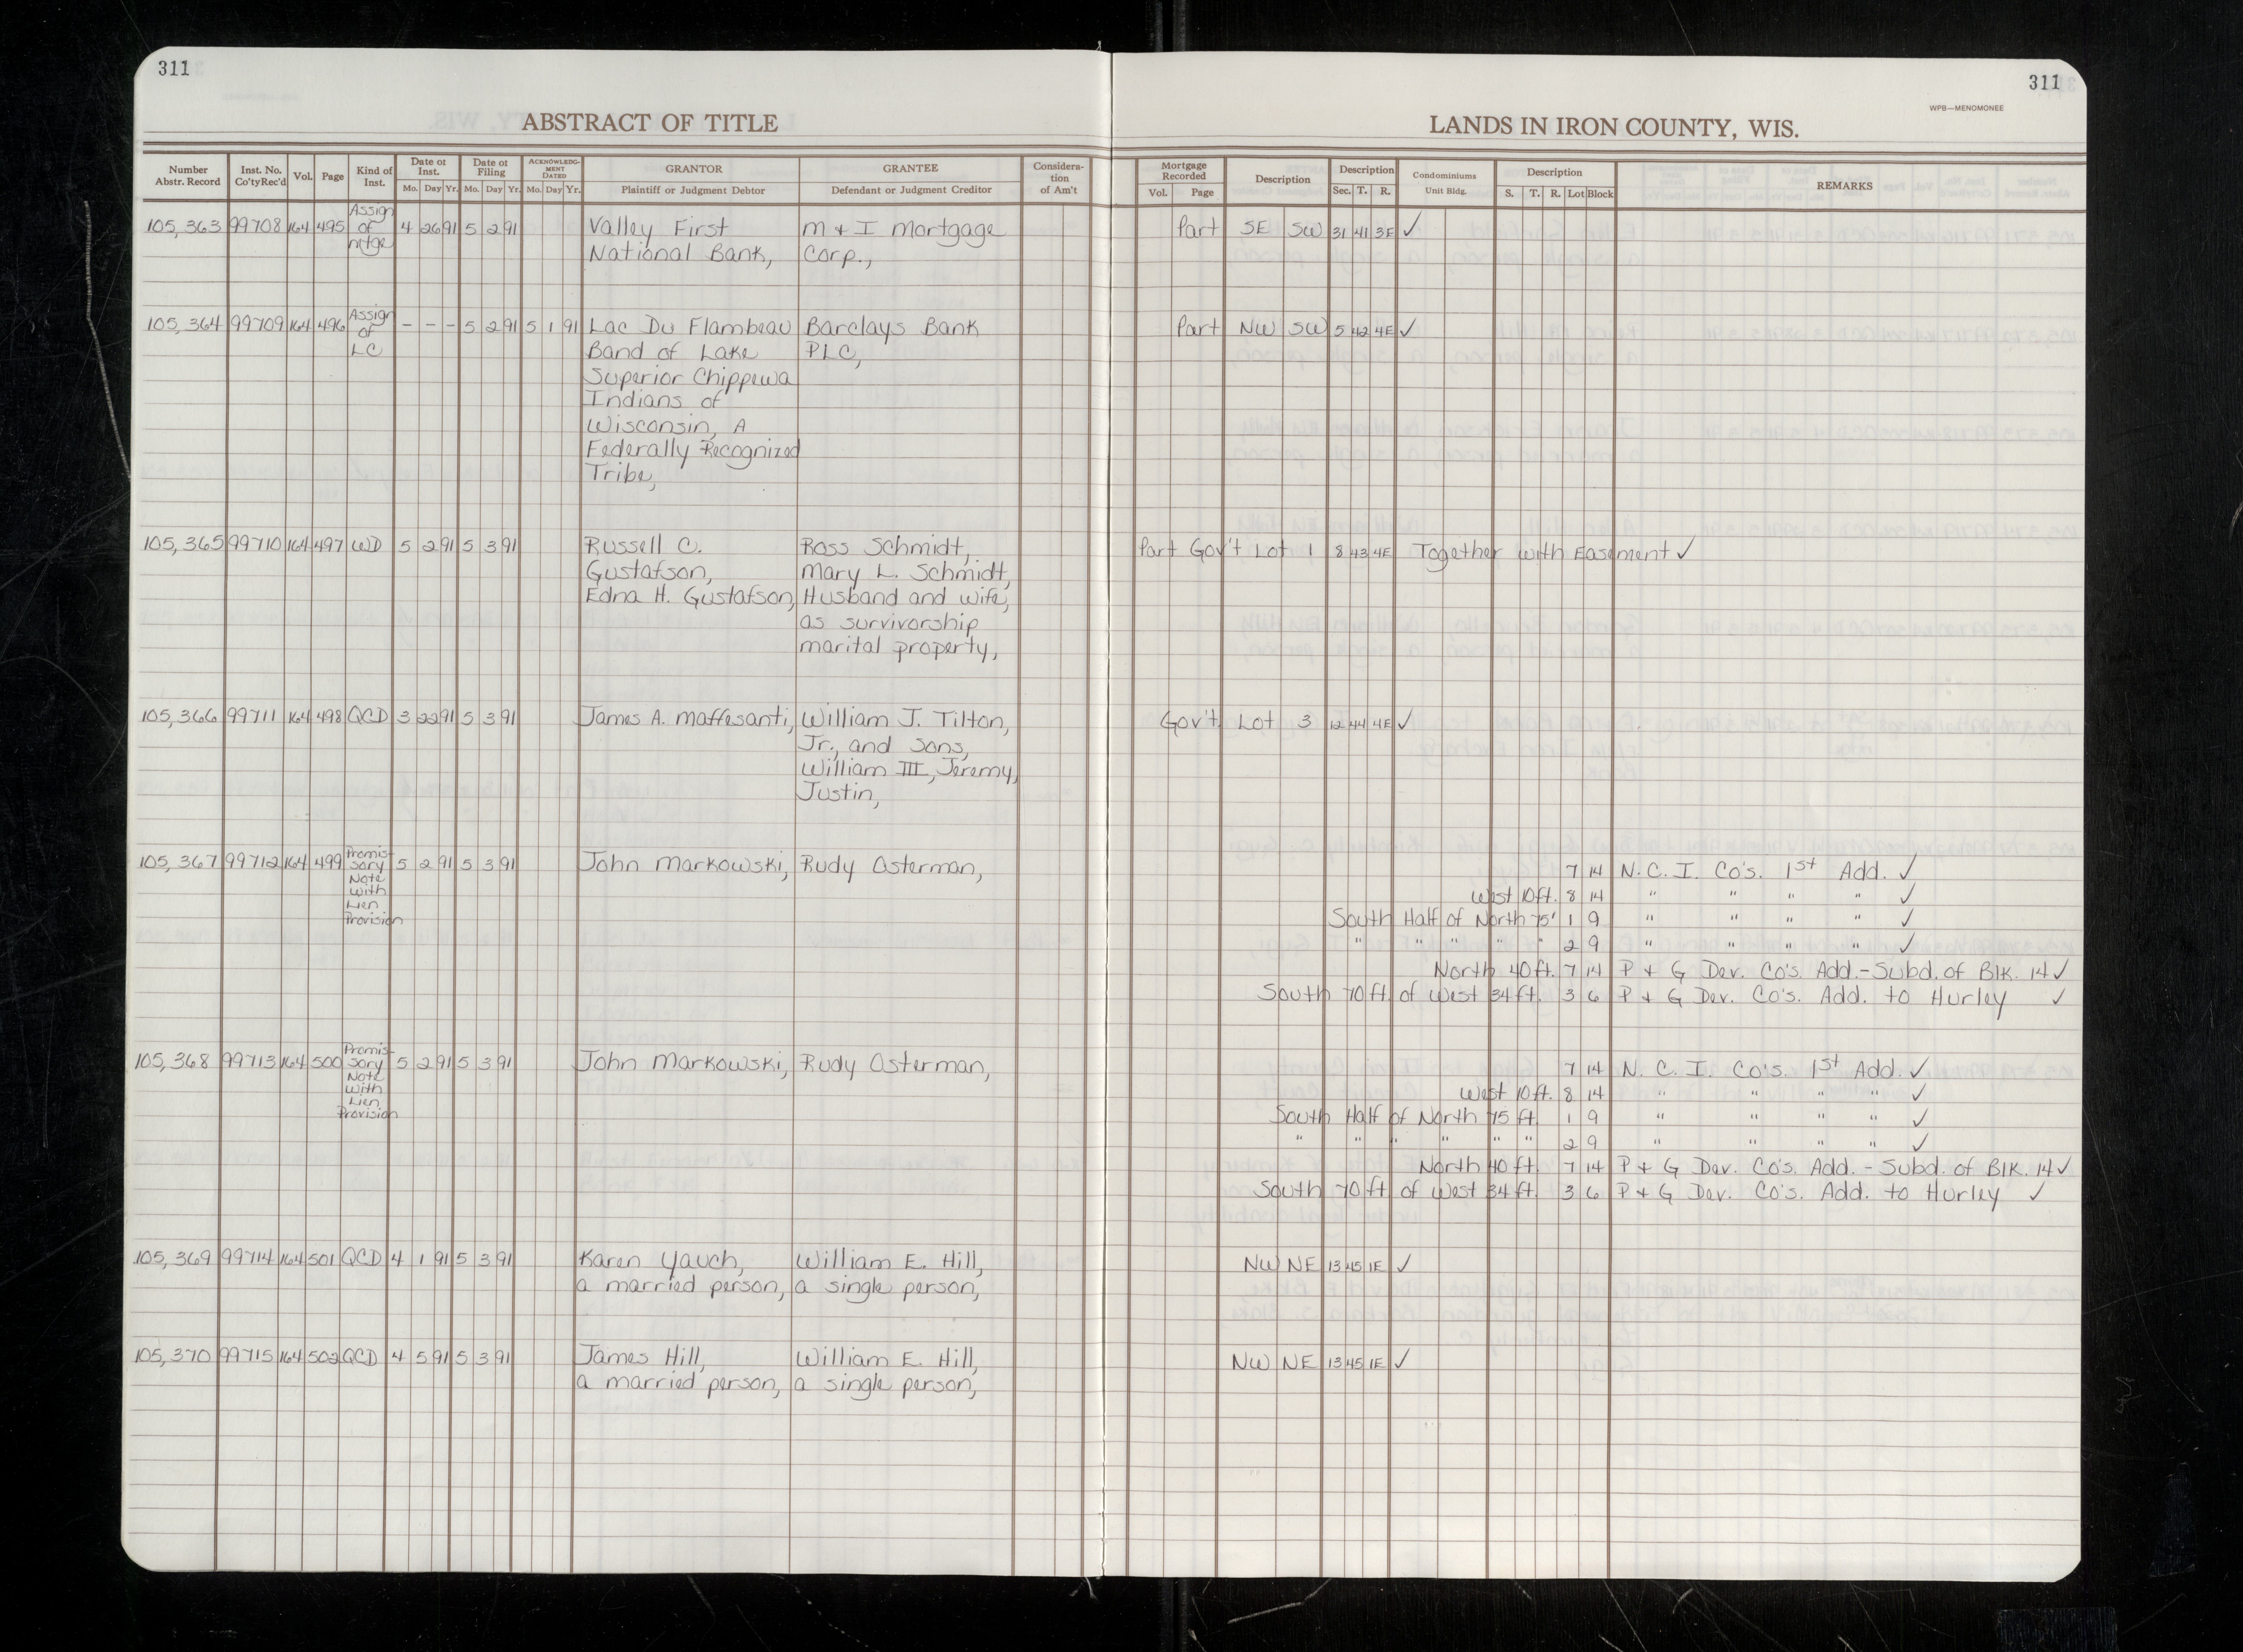 311
311
WPB—MENOMONEE
ABSTRACT OF TITLE
LANDS IN IRON COUNTY, WIS.
Number Abstr. Record | Inst. No. Co'ty Rec'd | Vol. | Page | Kind of Inst. | Date of Inst. Mo. Day Yr. | Date of Filing Mo. Day Yr. | ACKNOWLEDGMENT DATED Mo. Day Yr. | GRANTOR Plaintiff or Judgment Debtor | GRANTEE Defendant or Judgment Creditor | Consideration of Am't | Mortgage Recorded Vol. Page | Description | Description Sec. T. R. | Condominiums Unit Bldg. | Description S. T. R. Lot Block | REMARKS
105,363 99708 164 495 Assign of mtge 4 26 91 5 2 91 Valley First M & I Mortgage Part SE SW 31 41 3E ✓
National Bank, Corp.,
105,364 99709 164 496 Assign of LC - - - 5 2 91 5 1 91 Lac Du Flambeau Barclays Bank Part NW SW 5 42 4E ✓
Band of Lake PLC,
Superior Chippewa
Indians of
Wisconsin, A
Federally Recognized
Tribe,
105,365 99710 164 497 WD 5 2 91 5 3 91 Russell C. Ross Schmidt, Part Gov't Lot 1 8 43 4E Together with Easement ✓
Gustafson, Mary L. Schmidt,
Edna H. Gustafson, Husband and wife,
as survivorship
marital property,
105,366 99711 164 498 QCD 3 22 91 5 3 91 James A. Maffesanti, William J. Tilton, Gov't Lot 3 12 44 4E ✓
Jr., and Sons,
William III, Jeremy,
Justin,
105,367 99712 164 499 Promissory Note With Lien Provision 5 2 91 5 3 91 John Markowski, Rudy Osterman, 7 14 N. C. I. Co's. 1st Add. ✓
West 10 ft. 8 14 " " " " ✓
South Half of North 75' 1 9 " " " " ✓
" " " " " 2 9 " " " " ✓
North 40 ft. 7 14 P & G Dev. Co's. Add. - Subd. of Blk. 14 ✓
South 70 ft. of West 34 ft. 3 6 P & G Dev. Co's. Add. to Hurley ✓
105,368 99713 164 500 Promissory Note With Lien Provision 5 2 91 5 3 91 John Markowski, Rudy Osterman, 7 14 N. C. I. Co's. 1st Add. ✓
West 10 ft. 8 14 " " " " ✓
South Half of North 75 ft. 1 9 " " " " ✓
" " " " " " 2 9 " " " " ✓
North 40 ft. 7 14 P & G Dev. Co's. Add. - Subd. of Blk. 14 ✓
South 70 ft. of West 34 ft. 3 6 P & G Dev. Co's. Add. to Hurley ✓
105,369 99714 164 501 QCD 4 1 91 5 3 91 Karen Yauch, William E. Hill, NW NE 13 45 1E ✓
a married person, a single person,
105,370 99715 164 502 QCD 4 5 91 5 3 91 James Hill, William E. Hill, NW NE 13 45 1E ✓
a married person, a single person,